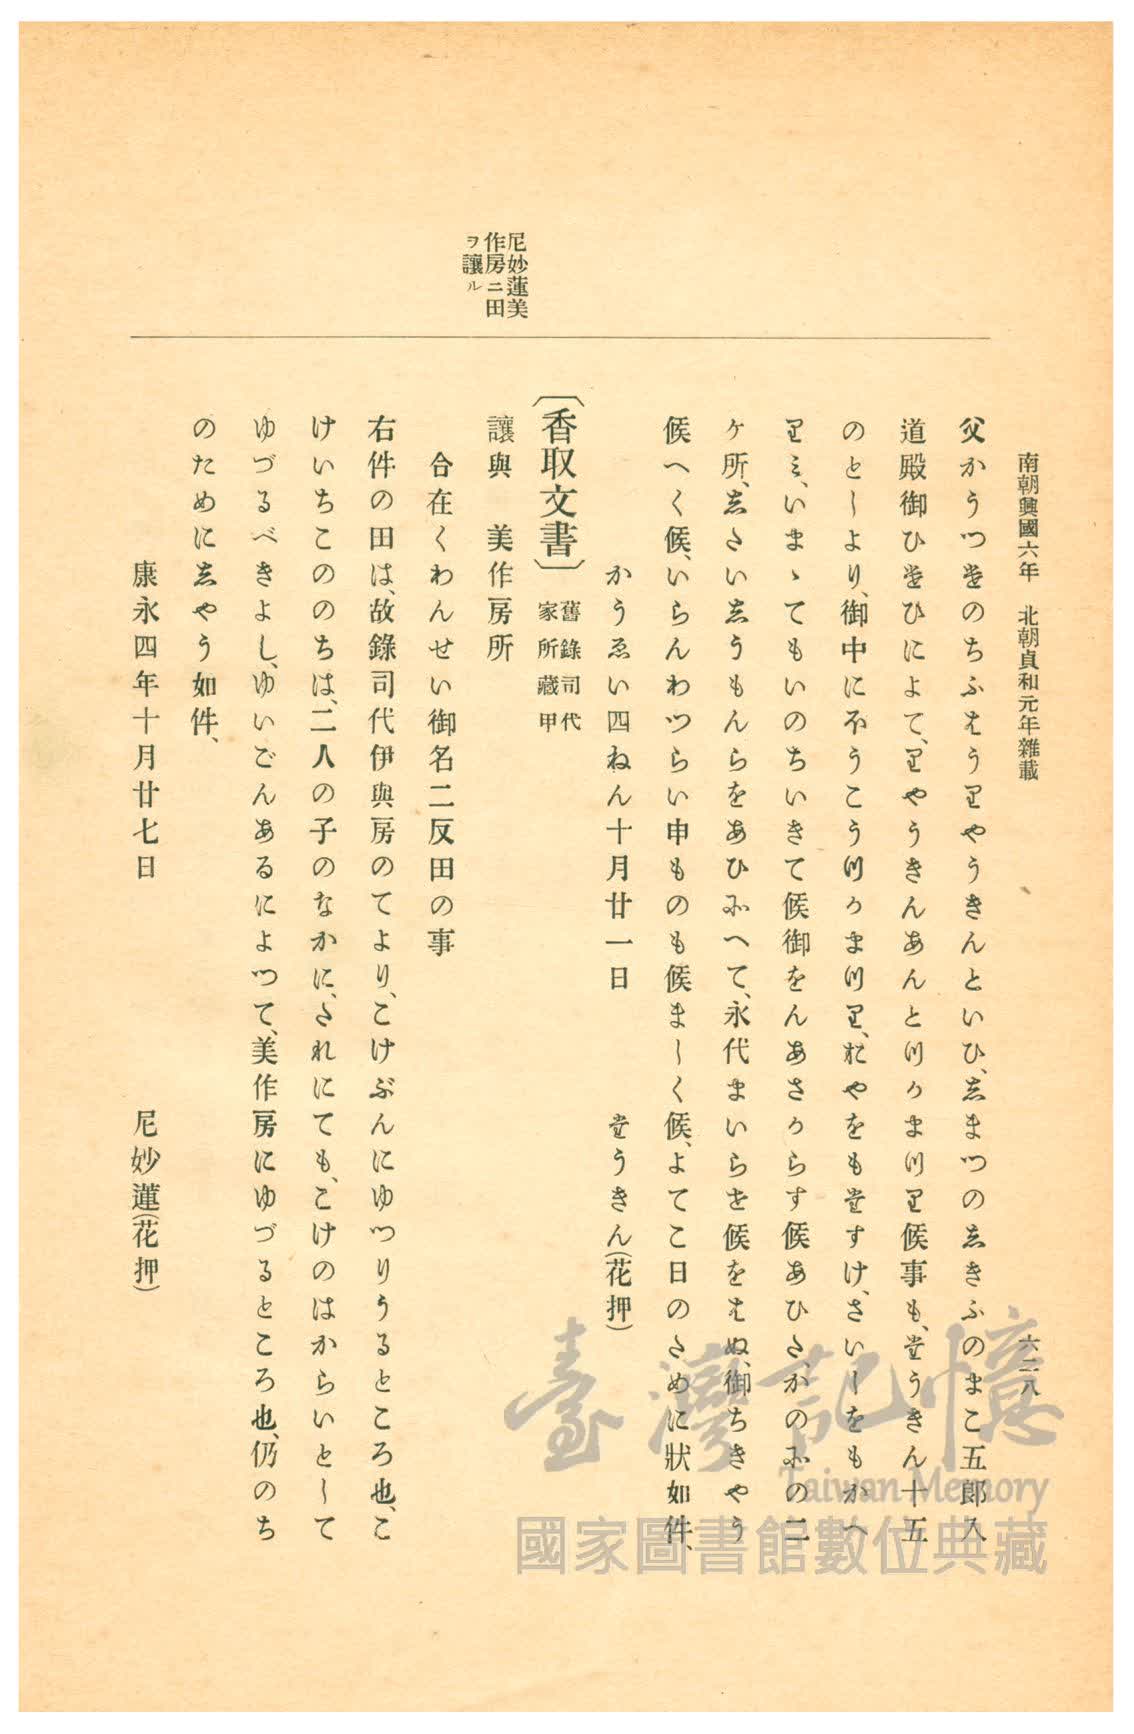 南朝興國六年　北朝貞和元年雜載
六二八
父かうつ𛁠のちふ𛂞うりやうきんといひ、𛁈まつの𛁈きふのまこ五郎入
道殿御ひ𛁠ひによて、りやうきんあんと𛁭𛀙ま𛁭り候事も、𛁠うきん十五
のとしより、御中に不うこう𛁭𛀙ま𛁭り、𛀔やをも𛁠すけ、さいしをもかへ
りミ、いまゝてもいのちいきて候御をんあさ𛀙らす候あひ𛁟、かの𛂶の二
ケ所、𛁈さい𛁈うもんらをあひ𛂶へて、永代まいらを候を𛂞ぬ、御ちきやう
候へく候、いらんわつらい申ものも候ましく候、よてこ日の𛁟めに狀如件、
かうゑい四ねん十月廿一日　𛁠うきん(花押)
〔香取文書〕舊錄司代家所藏甲
尼妙蓮美
作房ニ田
ヲ讓ル
讓與　美作房所
合在くわんせい御名二反田の事
右件の田は、故錄司代伊與房のてより、こけぶんにゆつりうるところ也、こ
けいちこののちは、二人の子のなかに、𛁟れにても、こけのはからいとして
ゆづるべきよし、ゆいごんあるによつて、美作房にゆづるところ也、仍のち
のために𛁈やう如件、
康永四年十月廿七日　尼妙蓮(花押)
臺灣記憶
Taiwan Memory
國家圖書館數位典藏